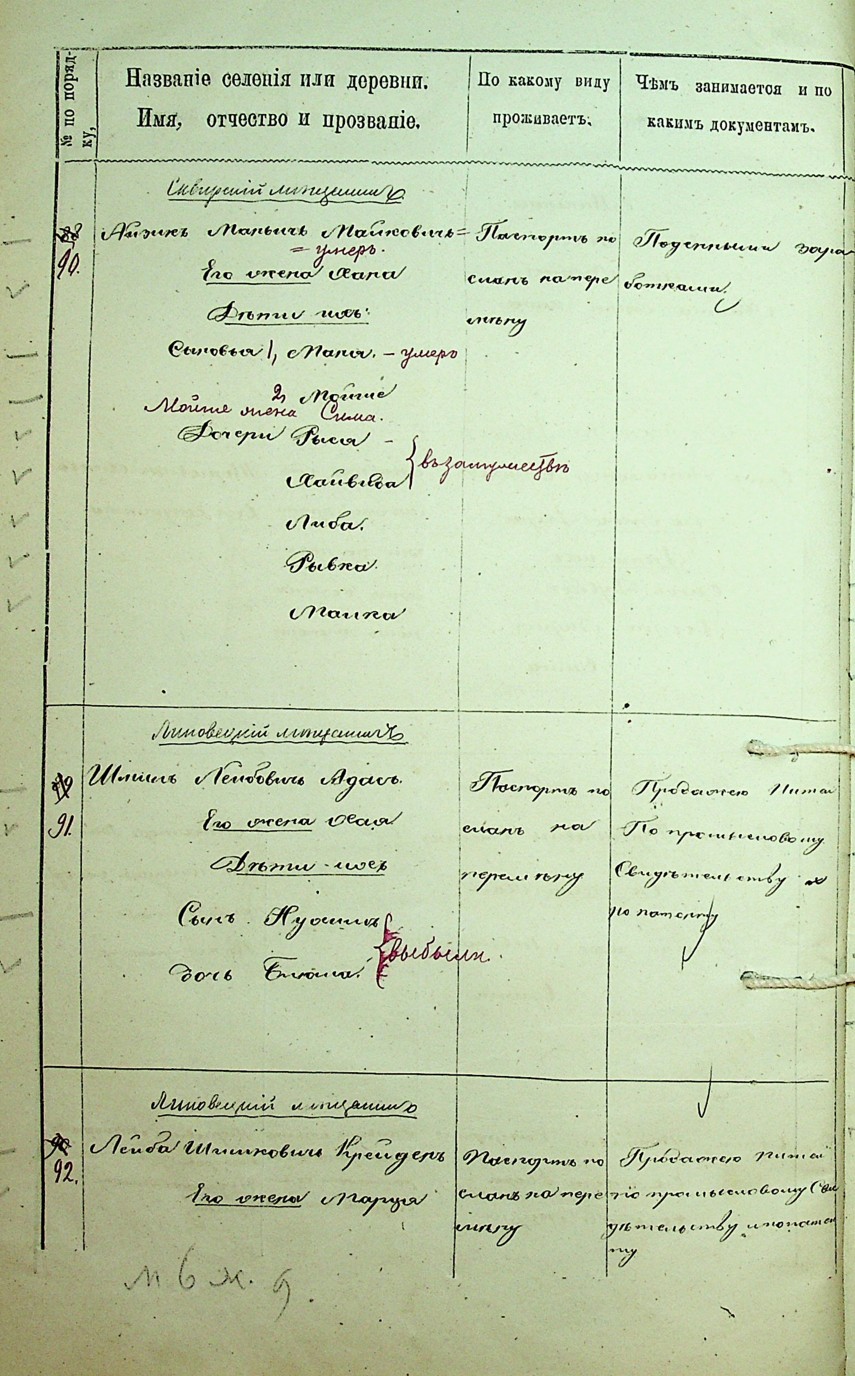 № по поряд-
ку,
Названіе селенія или деревни.
Имя, отчество и прозваніе.
По какому виду
проживаетъ.
Чѣмъ занимается и по
какимъ документамъ.
Сквирскій мѣщанинъ
90.
Айзикъ Маньичъ Майковичъ =
= умеръ.
Его жена Хана
Дѣти ихъ:
Сыновья 1, Маня. – умеръ
2, Мойше
Мойше жена Сима.
Дочери Рыся –
въ замужествѣ
Либа.
Рывка.
Малка
Паспортъ по
сланъ на пере
мѣну
Поденными зара
ботками.
Липовецкій мѣщанинъ
91.
Шмиль Лейбовичъ Адась.
Его жена Хая
Дѣти ихъ
Сынъ
дочь Блюма.
выбыли.
Паспортъ по
сланъ на
перемѣну
Продажею питей
По промысловому
Свидѣтельству и
по патенту
Липовецкій мѣщанинъ
92.
Лейба Шимковичъ Крейденъ
Его жена Марція
Паспортъ по
сланъ на пере
мѣну
Продажею питей
по промысловому Сви
дѣтельству и по патен
ту
м 6 ж. 9.